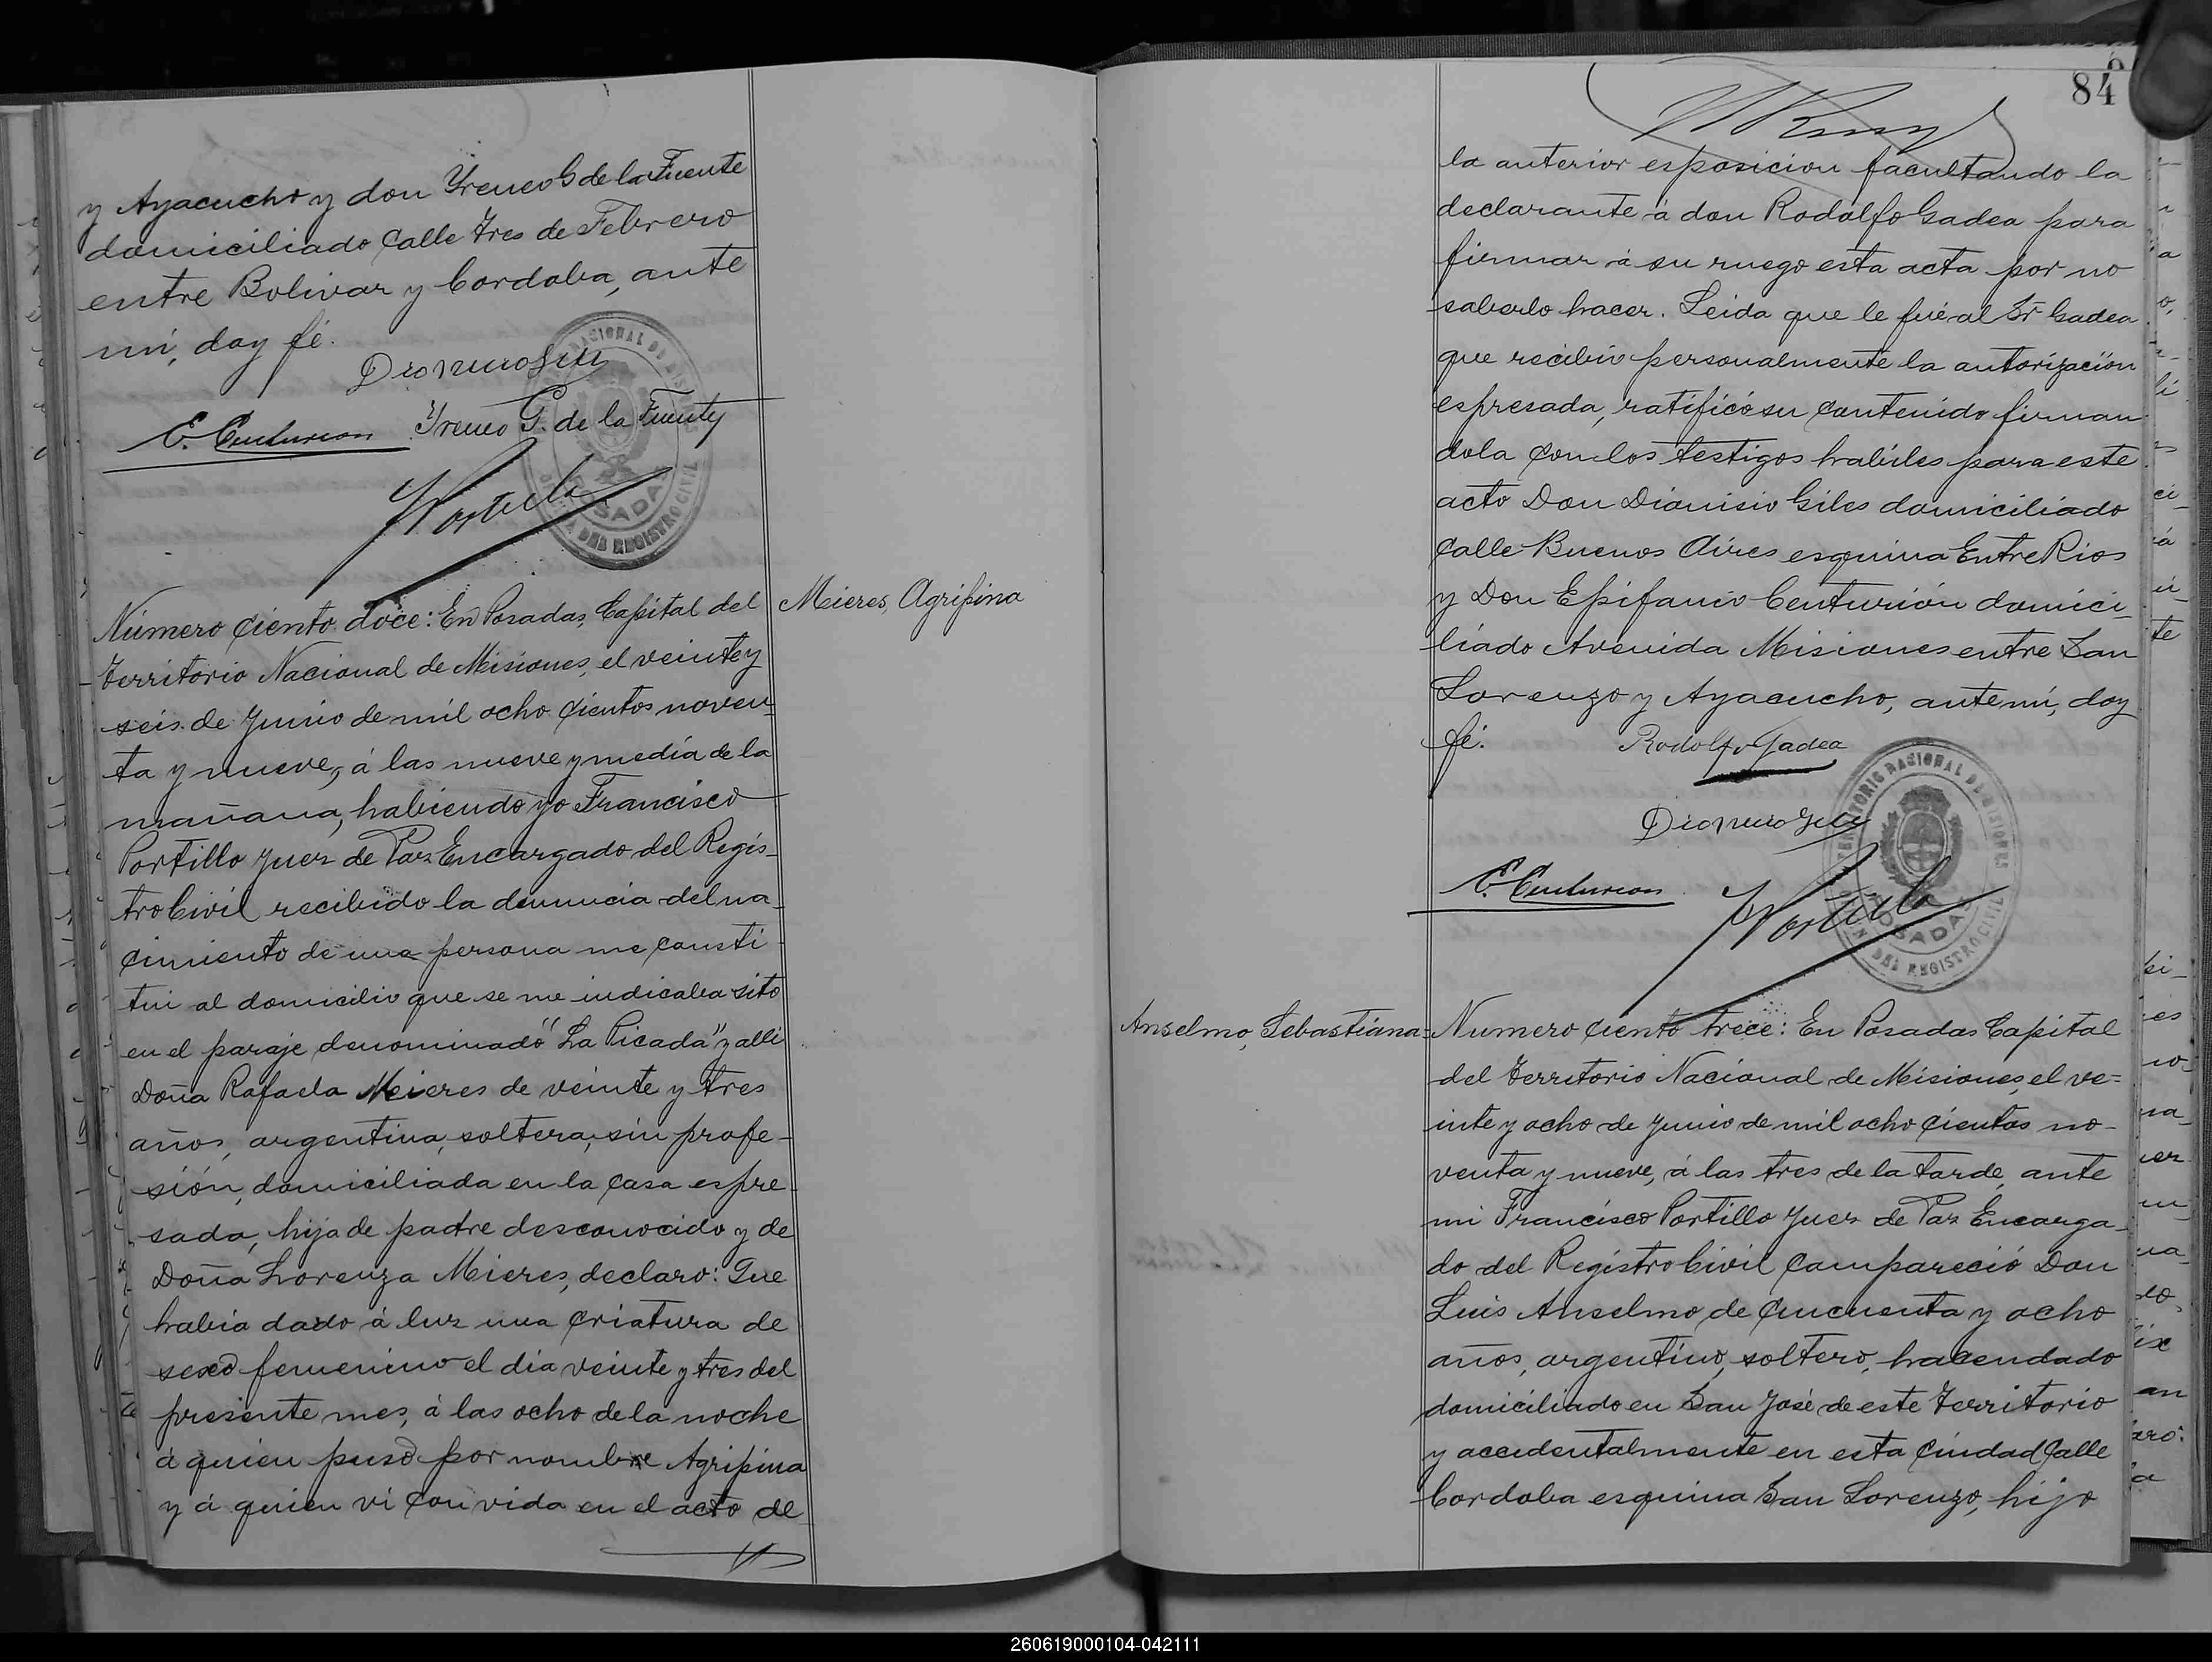 y Ayacucho y don Yreneo G de la Fuente
domiciliado Calle Tres de Febrero
entre Bolivar y Cordoba, ante
mí, doy fé.
E. Centurion
Yreneo G. de la Fuente
POSADAS
DEL REGISTRO CIVIL
Número ciento doce: En Posadas, Capital del
Meieres, Agripina
Territorio Nacional de Misiones, el veinte y
seis de Junio de mil ocho cientos noven
ta y nueve, á las nueve y media de la
mañana, habiendo yo Francisco
Portillo Juez de Paz Encargado del Regis-
tro Civil recibido la denuncia del na-
cimiento de una persona me consti
tui al domicilio que se me indicaba sito
en el paraje denominado "La Picada" y alli
Doña Rafaela Meieres de veinte y tres
años, argentina, soltera, sin profe-
sión, domiciliada en la casa espre-
sada, hija de padre desconocido y de
Doña Lorenza Mieres, declaro: Que
habia dado á luz una criatura de
sexo femenino el dia veinte y tres del
presente mes, á las ocho de la noche
á quien puso por nombre Agripina
y á quien ví con vida en el acto de
84
la anterior esposicion facultando la
declarante á don Rodolfo Gadea para
firmar á su ruego esta acta por no
saberlo hacer. Leida que le fué al Sr Gadea
que recibió personalmente la autorización
espresada, ratificó su contenido firman
dola con los testigos habiles para este
acto Don Dionisio Giles domiciliado
Calle Buenos Aires esquina Entre Rios
y Don Epifanio Centurión domici-
liado Avenida Misiones entre San
Lorenzo y Ayacucho, ante mí, doy
fé.
Rodolfo Gadea
TERRITORIO NACIONAL DE MISIONES
E. Centurion
POSADAS
DEL REGISTRO CIVIL
Anselmo, Sebastiana
Numero ciento trece: En Posadas Capital
del Territorio Nacional de Misiones, el ve=
inte y ocho de Junio de mil ocho cientos no-
venta y nueve, á las tres de la tarde, ante
mi Francisco Portillo Juez de Paz Encarga-
do del Registro Civil compareció Don
Luis Anselmo de cincuenta y ocho
años, argentino, soltero, hacendado
domiciliado en San José de este Territorio
y accidentalmente en esta Ciudad Calle
Cordoba esquina San Lorenzo, hijo
260619000104-042111